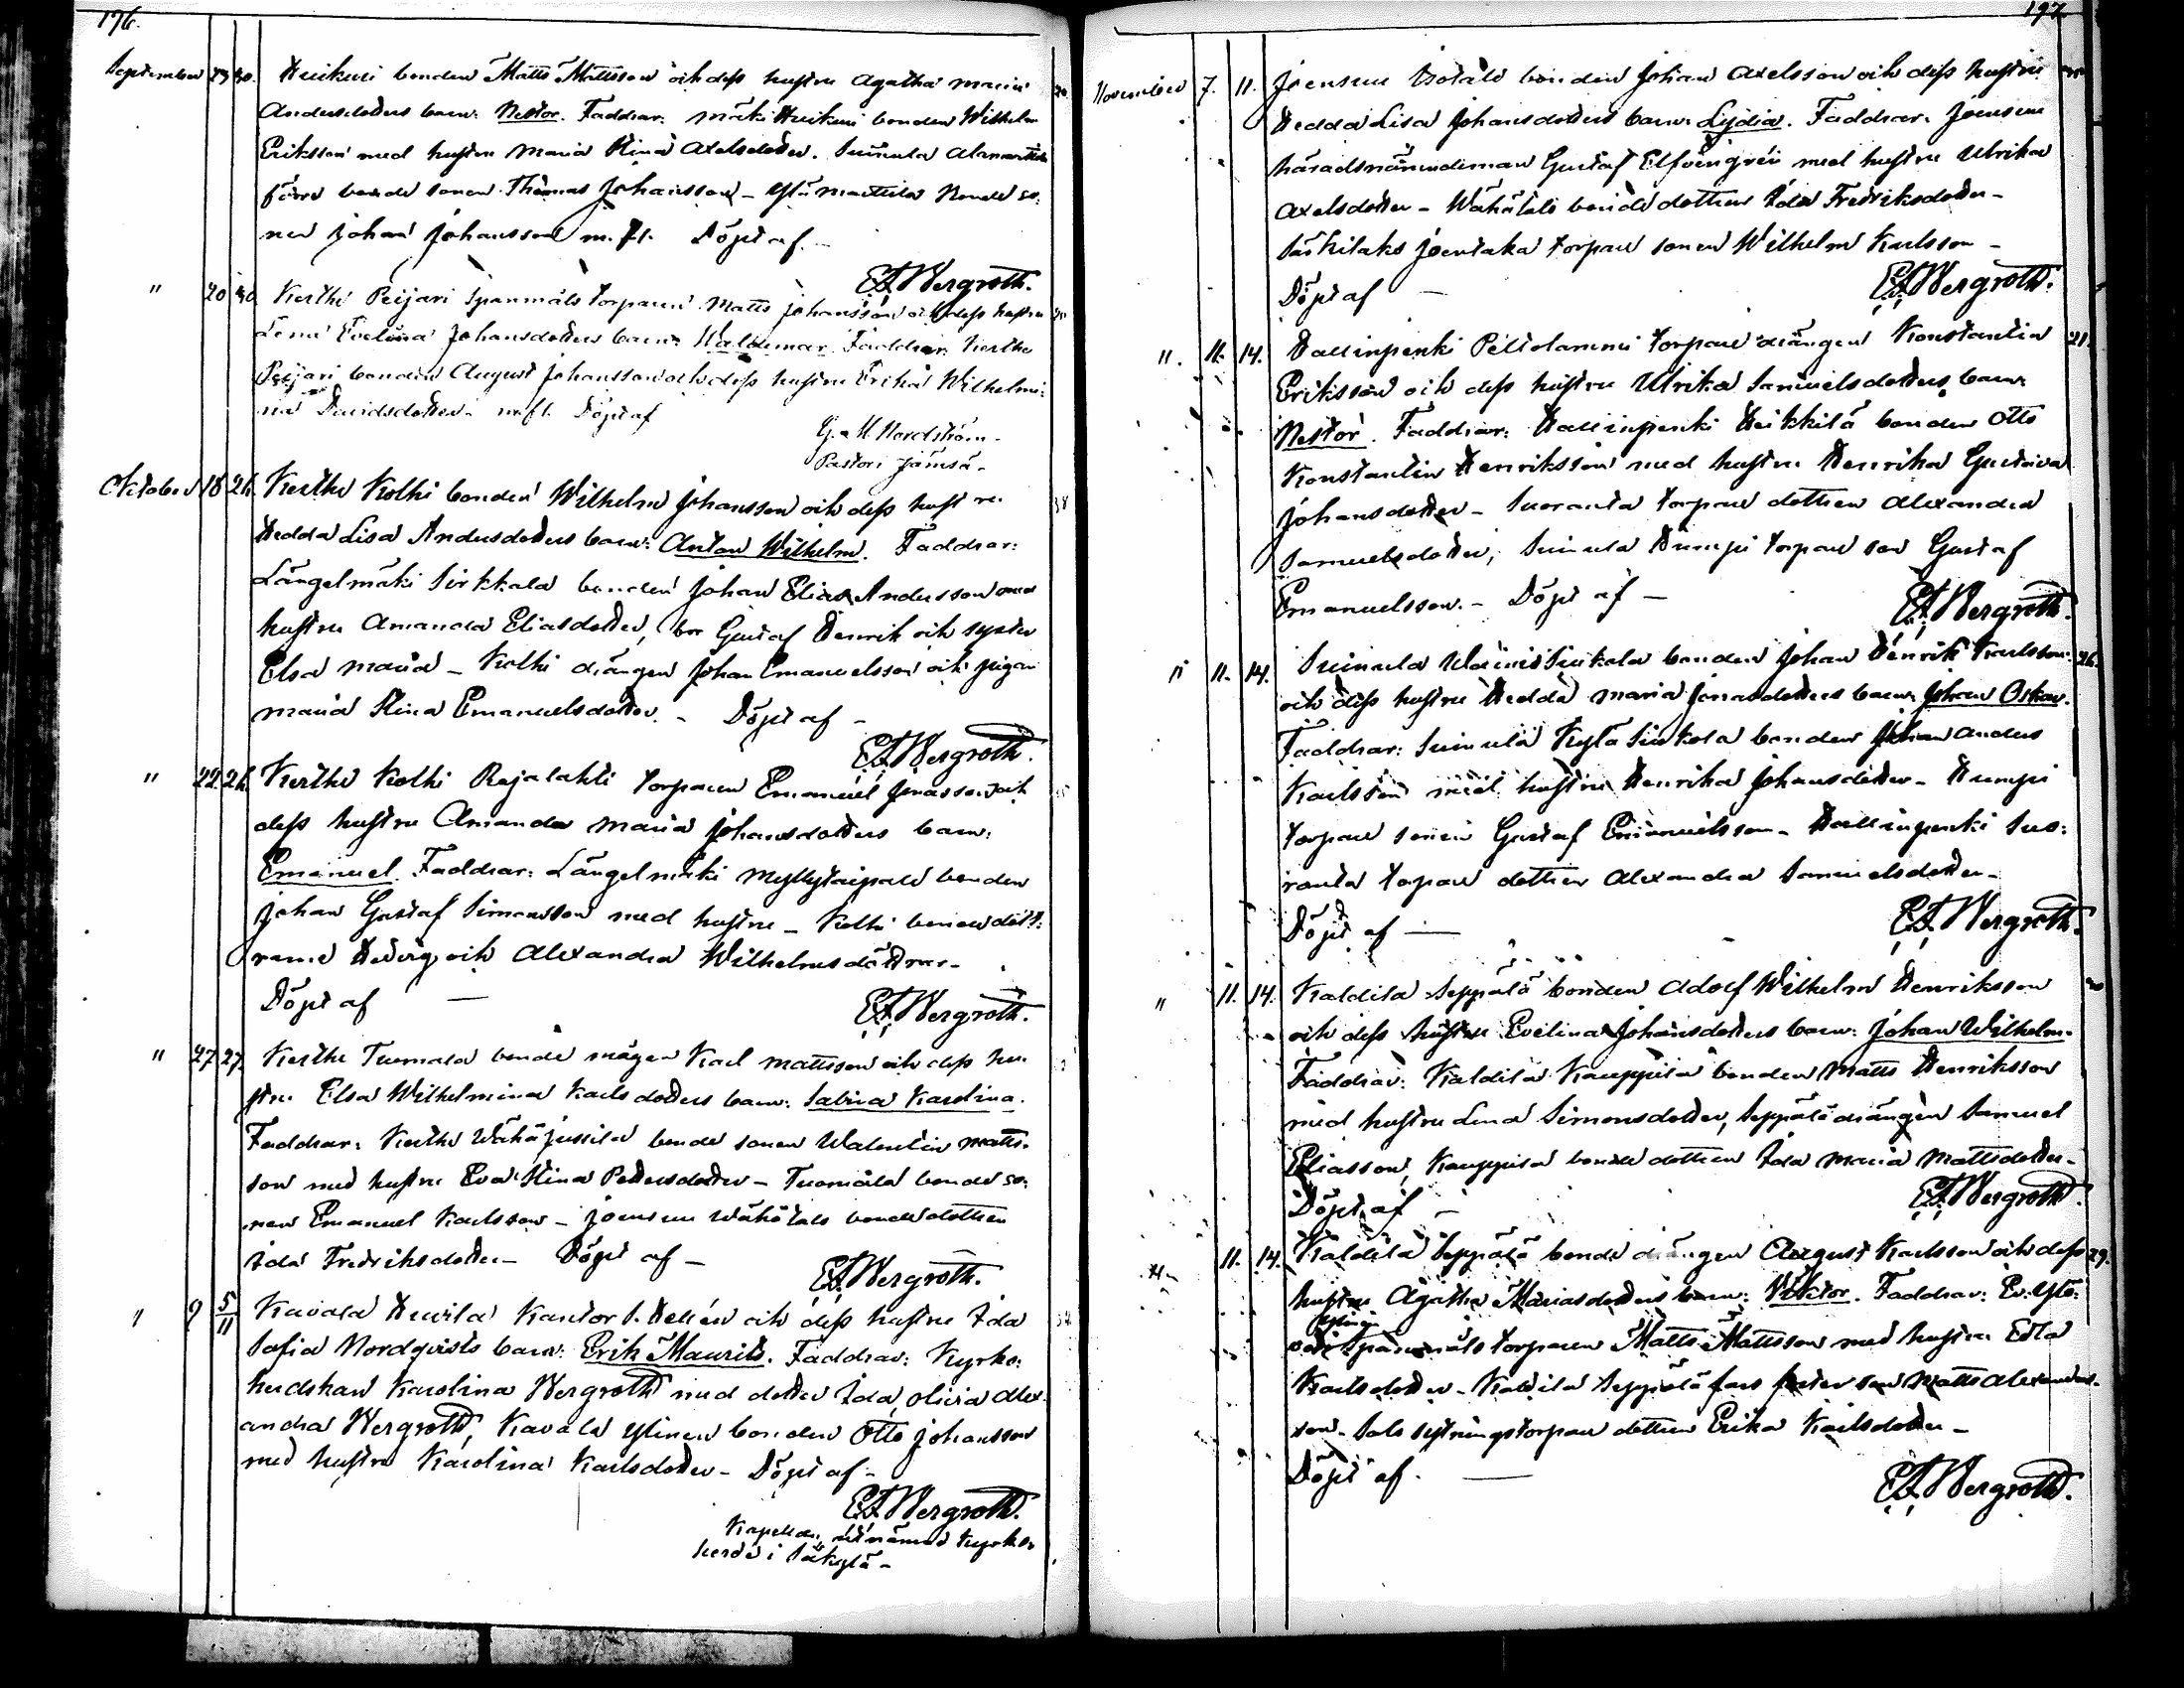 196.
September 23 30. Huikuri bonden Matts Mattsson och dess hustru Agatha Maria
Andersdotters barn: Nestor. Faddrar: Mäki Huikuri bonden Wilhelm
Eriksson med hustru Maria Stina Axelsdotter. Suinula
förre bonde sonen Thomas Johansson - bonde so-
nen Johan Johansson m. fl. Döpt af.-
E. F. Bergroth.
" 20 30. Kerthe Peijari Spanmåls torparen Matts Johansson och dess hustru
Lena Evelina Johansdotters barn: Waldemar. Faddrar: Kerthe
Peijari bonden August Johansson och dess hustru Erika Wilhelmi-
na Davidsdotter. m. fl. Döpt af
G. M. Nordström.
Pastor i Jämsä.
Oktober 18 26. Kerthe Kolhi bonden Wilhelm Johansson och dess hustru
Hedda Lisa Andersdotters barn: Anton Wilhelm. Faddrar:
Längelmäki Sirkkala bonden Johan Elias Andersson med
hustru Amanda Eliasdotter, bror Gustaf Henrik och syster
Elsa Maria - Kolhi drängen Johan Emanuelsson och pigan
Maria Stina Emanuelsdotter. - Döpt af -
E. F. Bergroth.
" 22. 26. Kerthe Kolhi Rajalahti torparen Emanuel Jonasson och
dess hustru Amanda Maria Johansdotters barn:
Emanuel. Faddrar: Längelmäki Myllytaipale bonden
Johan Gustaf Simonsson med hustru - Kolhi bonde dött-
rarne Hedvig och Alexandra Wilhelmsdöttrar -
Döpt af —
E. F. Bergroth.
" 27 27. Kerthe Tuomala bonde mågen Karl Mattsson och dess hu-
stru Elsa Wilhelmina Karlsdotters barn: Sabina Karolina.
Faddrar: Kerthe Wähäjussila bonde sonen Walentin Matts-
son med hustru Eva Stina Pettersdotter - Tuomala bonde so-
nen Emanuel Karlsson - Joensuu Wähätalo bonde dottren
Ida Fredriksdotter - Döpt af -
E. F. Bergroth.
" 9 5/11 Kavala Heurila Kantor S. Hellén och dess hustru Ida
Sofia Nordqvists barn: Erik Maurits. Faddrar: Kyrko-
herdskan Karolina Bergroth med dotter Ida, Olivia Alex-
andra Bergroth, Kavala Ylinen bonden Otto Johansson
med hustru Karolina Karlsdotter - Döpt af -
E. F. Bergroth.
Kapellan, utnämnd Kyrko-
herde i Säkylä -
197.
November 7. 11. Joensuu Isotalo bonden Johan Axelsson och dess hustru
Hedda Lisa Johansdotters barn: Lydia. Faddrar: Joensuu
häradsnämndeman Gustaf Elfvengrén med hustru Ulrika
Axelsdotter - Wähätalo bonde dottren Ida Fredriksdotter -
Säkilaks Joentaka torpare sonen Wilhelm Karlsson -
Döpt af —
E. F. Bergroth.
" 11. 14. Hallinpenki Peltolammi torpare drängen Konstantin 21.
Eriksson och dess hustru Ulrika Samuelsdotters barn:
Nestor. Faddrar: Hallinpenki Heikkilä bonden Otto
Konstantin Henriksson med hustru Henrika Gustava
Johansdotter - Suoranta torpare dottren Alexandra
Samuelsdotter, Suinula Humpi torpare son Gustaf
Emanuelsson. - Döpt af —
E. F. Bergroth.
" 11. 14. Suinula Siukola bonden Johan Henrik Karlsson 26.
och dess hustru Hedda Maria Jonasdotters barn: Johan Oskar.
Faddrar: Suinula Siukola bonden Johan Anders
Karlsson med hustru Henrika Johansdotter - Humpi
torpare sonen Gustaf Emanuelsson - Hallinpenki Suo-
ranta torpare dottren Alexandra Samuelsdotter -
Döpt af —
E. F. Bergroth.
" 11. 14. Kaldila Seppälä bonden Adolf Wilhelm Henriksson
och dess hustru Evelina Johansdotters barn: Johan Wilhelm.
Faddrar: Kaldila Kauppila bonden Matts Henriksson
med hustru Lena Simonsdotter, Seppälä drängen Samuel
Eliasson, Kauppila bonde dottren Ida Maria Mattsdotter -
Döpt af -
E. F. Bergroth.
" 11. 14. Kaldila Seppälä bonde drängen August Karlsson och dess 29.
hustru Agatha Mariasdotters barn: Viktor. Faddrar:
Spanmåls torparen Matts Mattsson med hustru Edla
Karlsdotter - Kaldila Seppälä fars son Matts Alexanders-
son - Salo sytningstorpare dottren Erika Karlsdotter -
Döpt af. —
E. F. Bergroth.